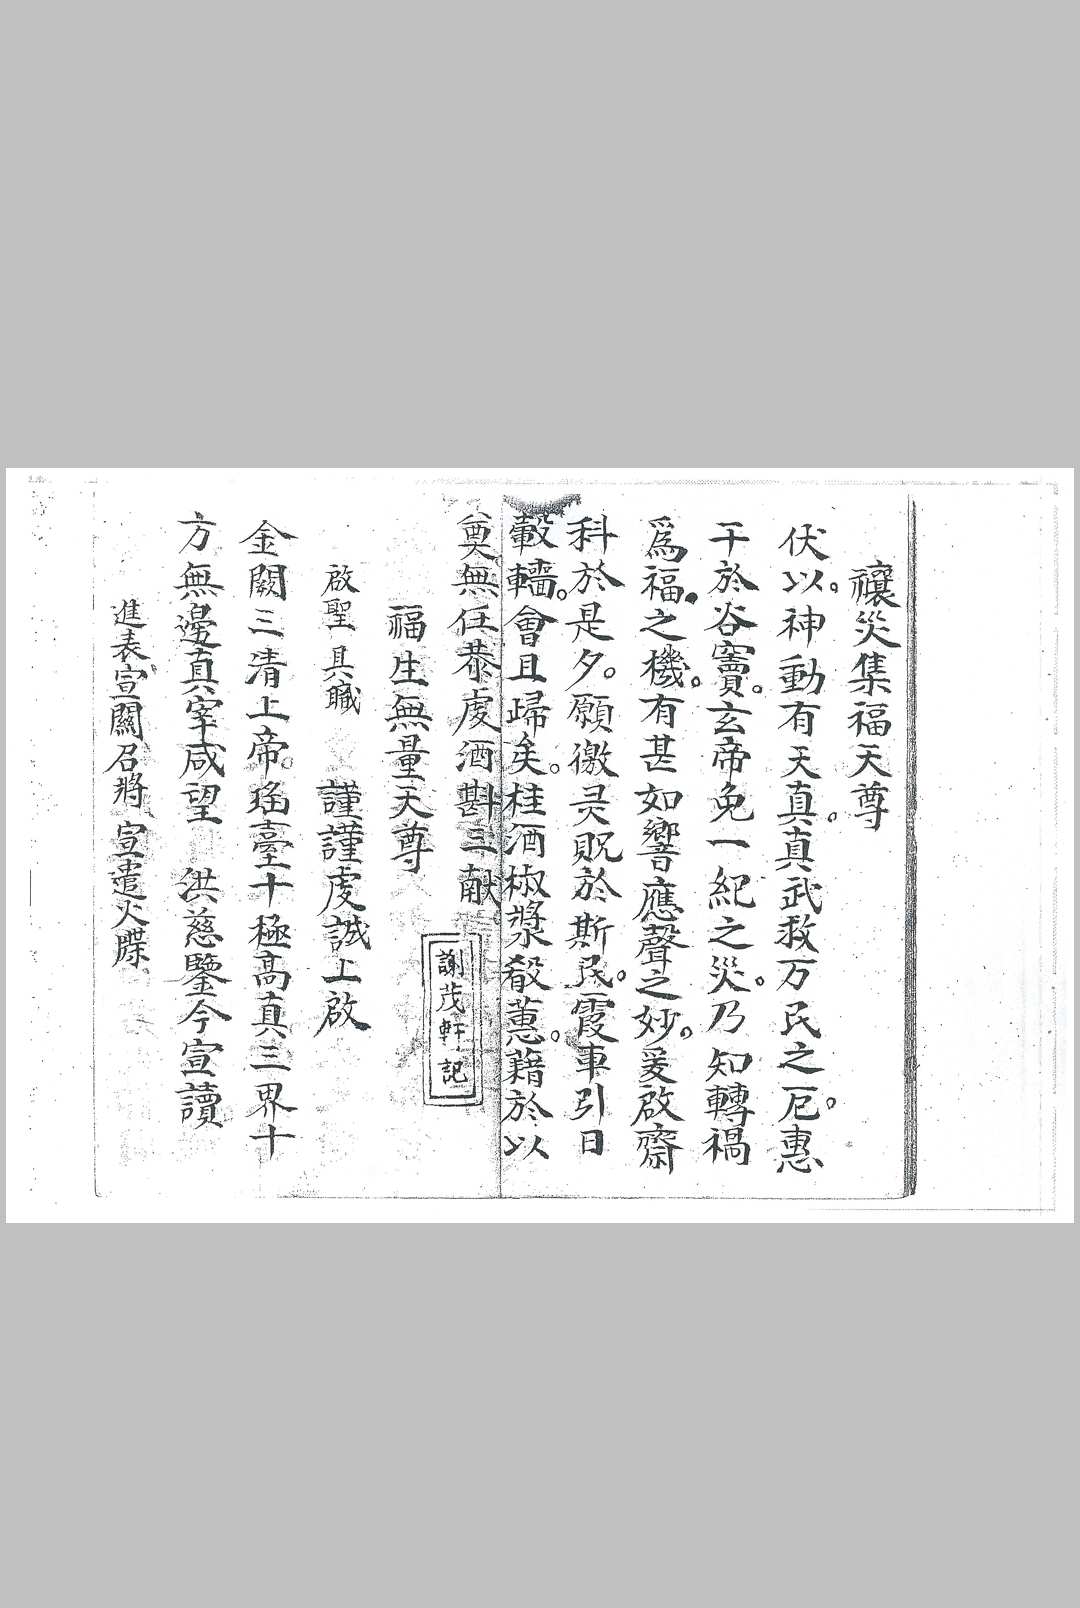 禳災集福天尊
伏以。神動有天真。真武救万民之厄。惠
干於谷竇。玄帝免一紀之災。乃知轉禍
爲福。之機。有甚如響應聲之妙。爰啟齋
科於是夕。願徼灵貺於斯民。霞車引日
轂轖。會且歸矣。桂酒椒漿。殽蕙。藉於以
奠無任恭虔酒斟三献
福生無量天尊
謝茂軒記
啟聖 具職 謹謹虔誠上啟
金闕三清上帝。瑤臺十極高真三界十
方無邊真宰咸望 洪慈鑒今宣讀
進表宣關召將 宣遣火牒